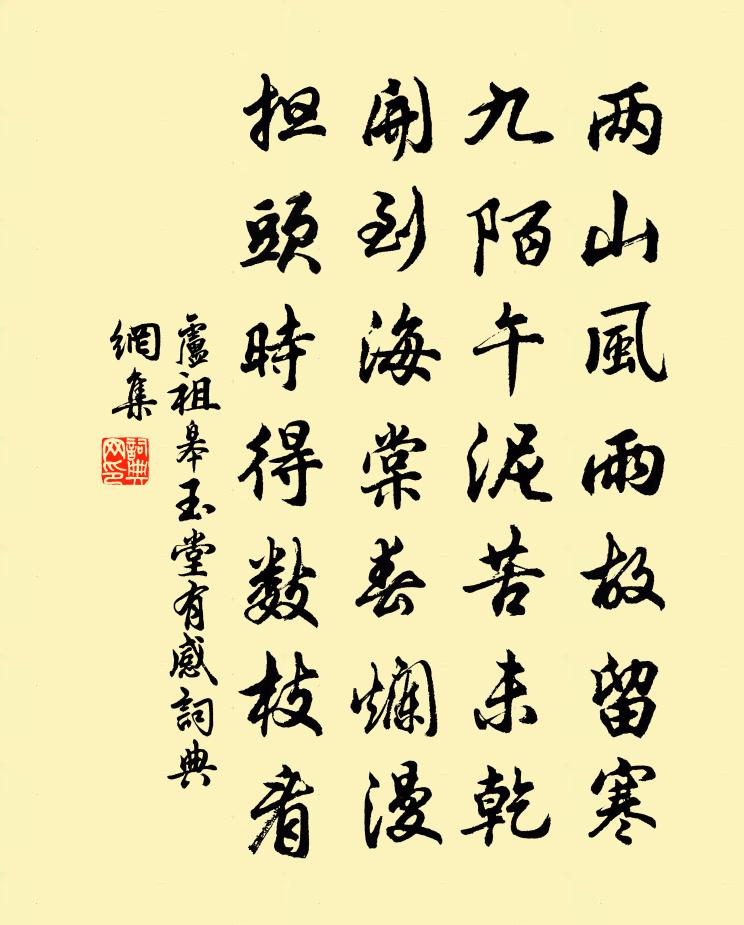 两山風雨故留寒
九陌午泥苦未乾
開到海棠春爛漫
担頭時得数枝看
盧祖皋玉堂有感詞典
網集
詞典網印